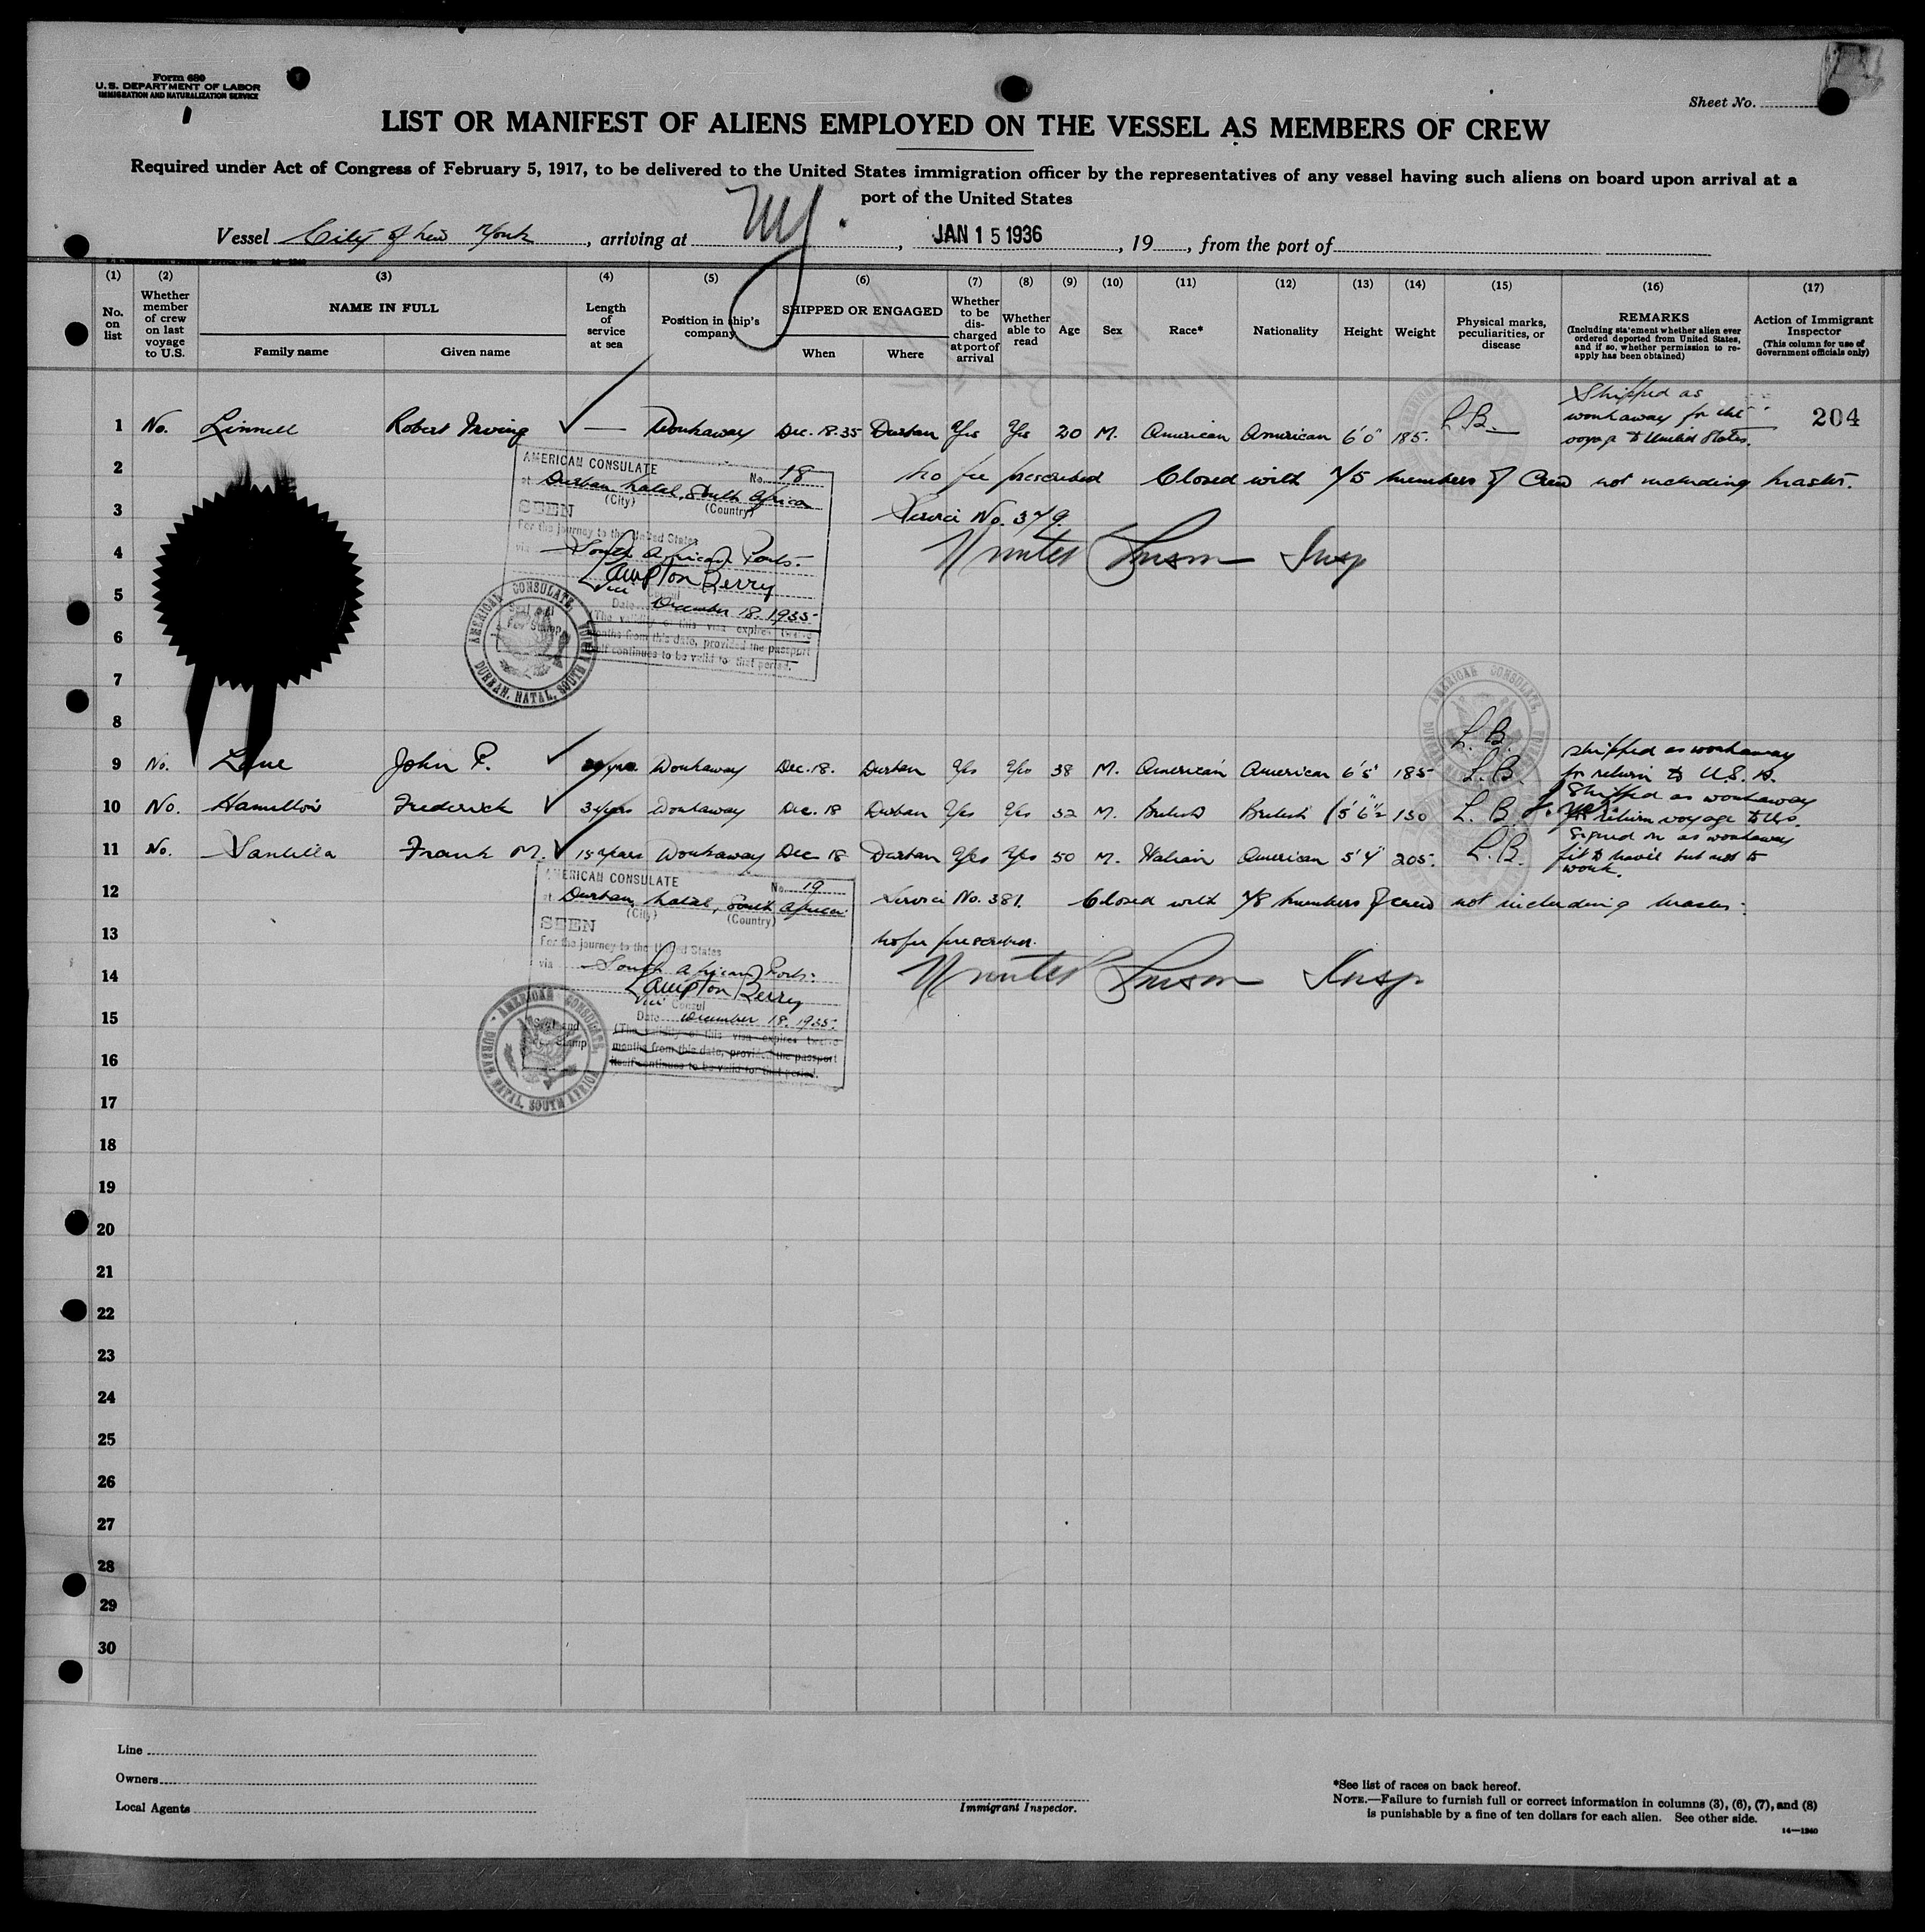 Form 680
U.S. DEPARTMENT OF LABOR
IMMIGRATION AND NATURALIZATION SERVICE
Sheet No.
LIST OR MANIFEST OF ALIENS EMPLOYED ON THE VESSEL AS MEMBERS OF CREW
Required under Act of Congress of February 5, 1917, to be delivered to the United States immigration officer by the representatives of any vessel having such aliens on board upon arrival at a
port of the United States
Vessel City of New York, arriving at NY., JAN 15 1936, 19, from the port of
(1) (2) (3) (4) (5) (6) (7) (8) (9) (10) (11) (12) (13) (14) (15) (16) (17)
No. on list
Whether member of crew on last voyage to U.S.
NAME IN FULL
Family name Given name
Length of service at sea
Position in ship's company
SHIPPED OR ENGAGED
When Where
Whether to be discharged at port of arrival
Whether able to read
Age
Sex
Race*
Nationality
Height
Weight
Physical marks, peculiarities, or disease
REMARKS
(Including statement whether alien ever ordered deported from United States, and if so, whether permission to re-apply has been obtained)
Action of Immigrant Inspector
(This column for use of Government officials only)
1 No. Linnell Robert Irving — Workaway Dec. 18.35 Durban Yes Yes 20 M. American American 6'0" 185. L.B. Shipped as workaway for the voyage to United States. 204
2 No fee prescribed Closed with 75 members of Crew not including Master.
3 Service No. 379.
4 Insp
5
6
7
8 L.B.
AMERICAN CONSULATE
No. 18
at Durban, Natal, South Africa
(City) (Country)
SEEN
For the journey to the United States
via South African Ports.
Lampton Berry
Vice Consul
Date December 18, 1935
(The validity of this visa expires twelve
months from this date, provided the passport
itself continues to be valid for that period.
Seal and
Fee Stamp
AMERICAN CONSULATE, DURBAN, NATAL, SOUTH AFRICA
9 No. Lane John P. Workaway Dec. 18. Durban Yes Yes 38 M. American American 6'5" 185 L.B. Shipped as workaway for return to U.S.A.
10 No. Hamilton Frederick 3 years Workaway Dec. 18 Durban Yes Yes 32 M. British British 5'6½ 130 L.B. Shipped as workaway for return voyage to U.S.
11 No. Santella Frank M. 15 years Workaway Dec 18 Durban Yes Yes 50 M. Italian American 5'4" 205. L.B. Signed on as workaway fit to travel but not to work.
12 Service No. 381. Closed with 78 members of crew not including Master.
13 No fee prescribed.
14 Insp.
AMERICAN CONSULATE
No. 19
at Durban, Natal, South Africa
(City) (Country)
SEEN
For the journey to the United States
via South African Ports.
Lampton Berry
Vice Consul
Date December 18, 1935.
(The validity of this visa expires twelve
months from this date, provided the passport
itself continues to be valid for that period.
Seal and
Fee Stamp
AMERICAN CONSULATE, DURBAN, NATAL, SOUTH AFRICA
15
16
17
18
19
20
21
22
23
24
25
26
27
28
29
30
Line
Owners
Local Agents
Immigrant Inspector.
*See list of races on back hereof.
NOTE.—Failure to furnish full or correct information in columns (3), (6), (7), and (8)
is punishable by a fine of ten dollars for each alien. See other side.
14—1240